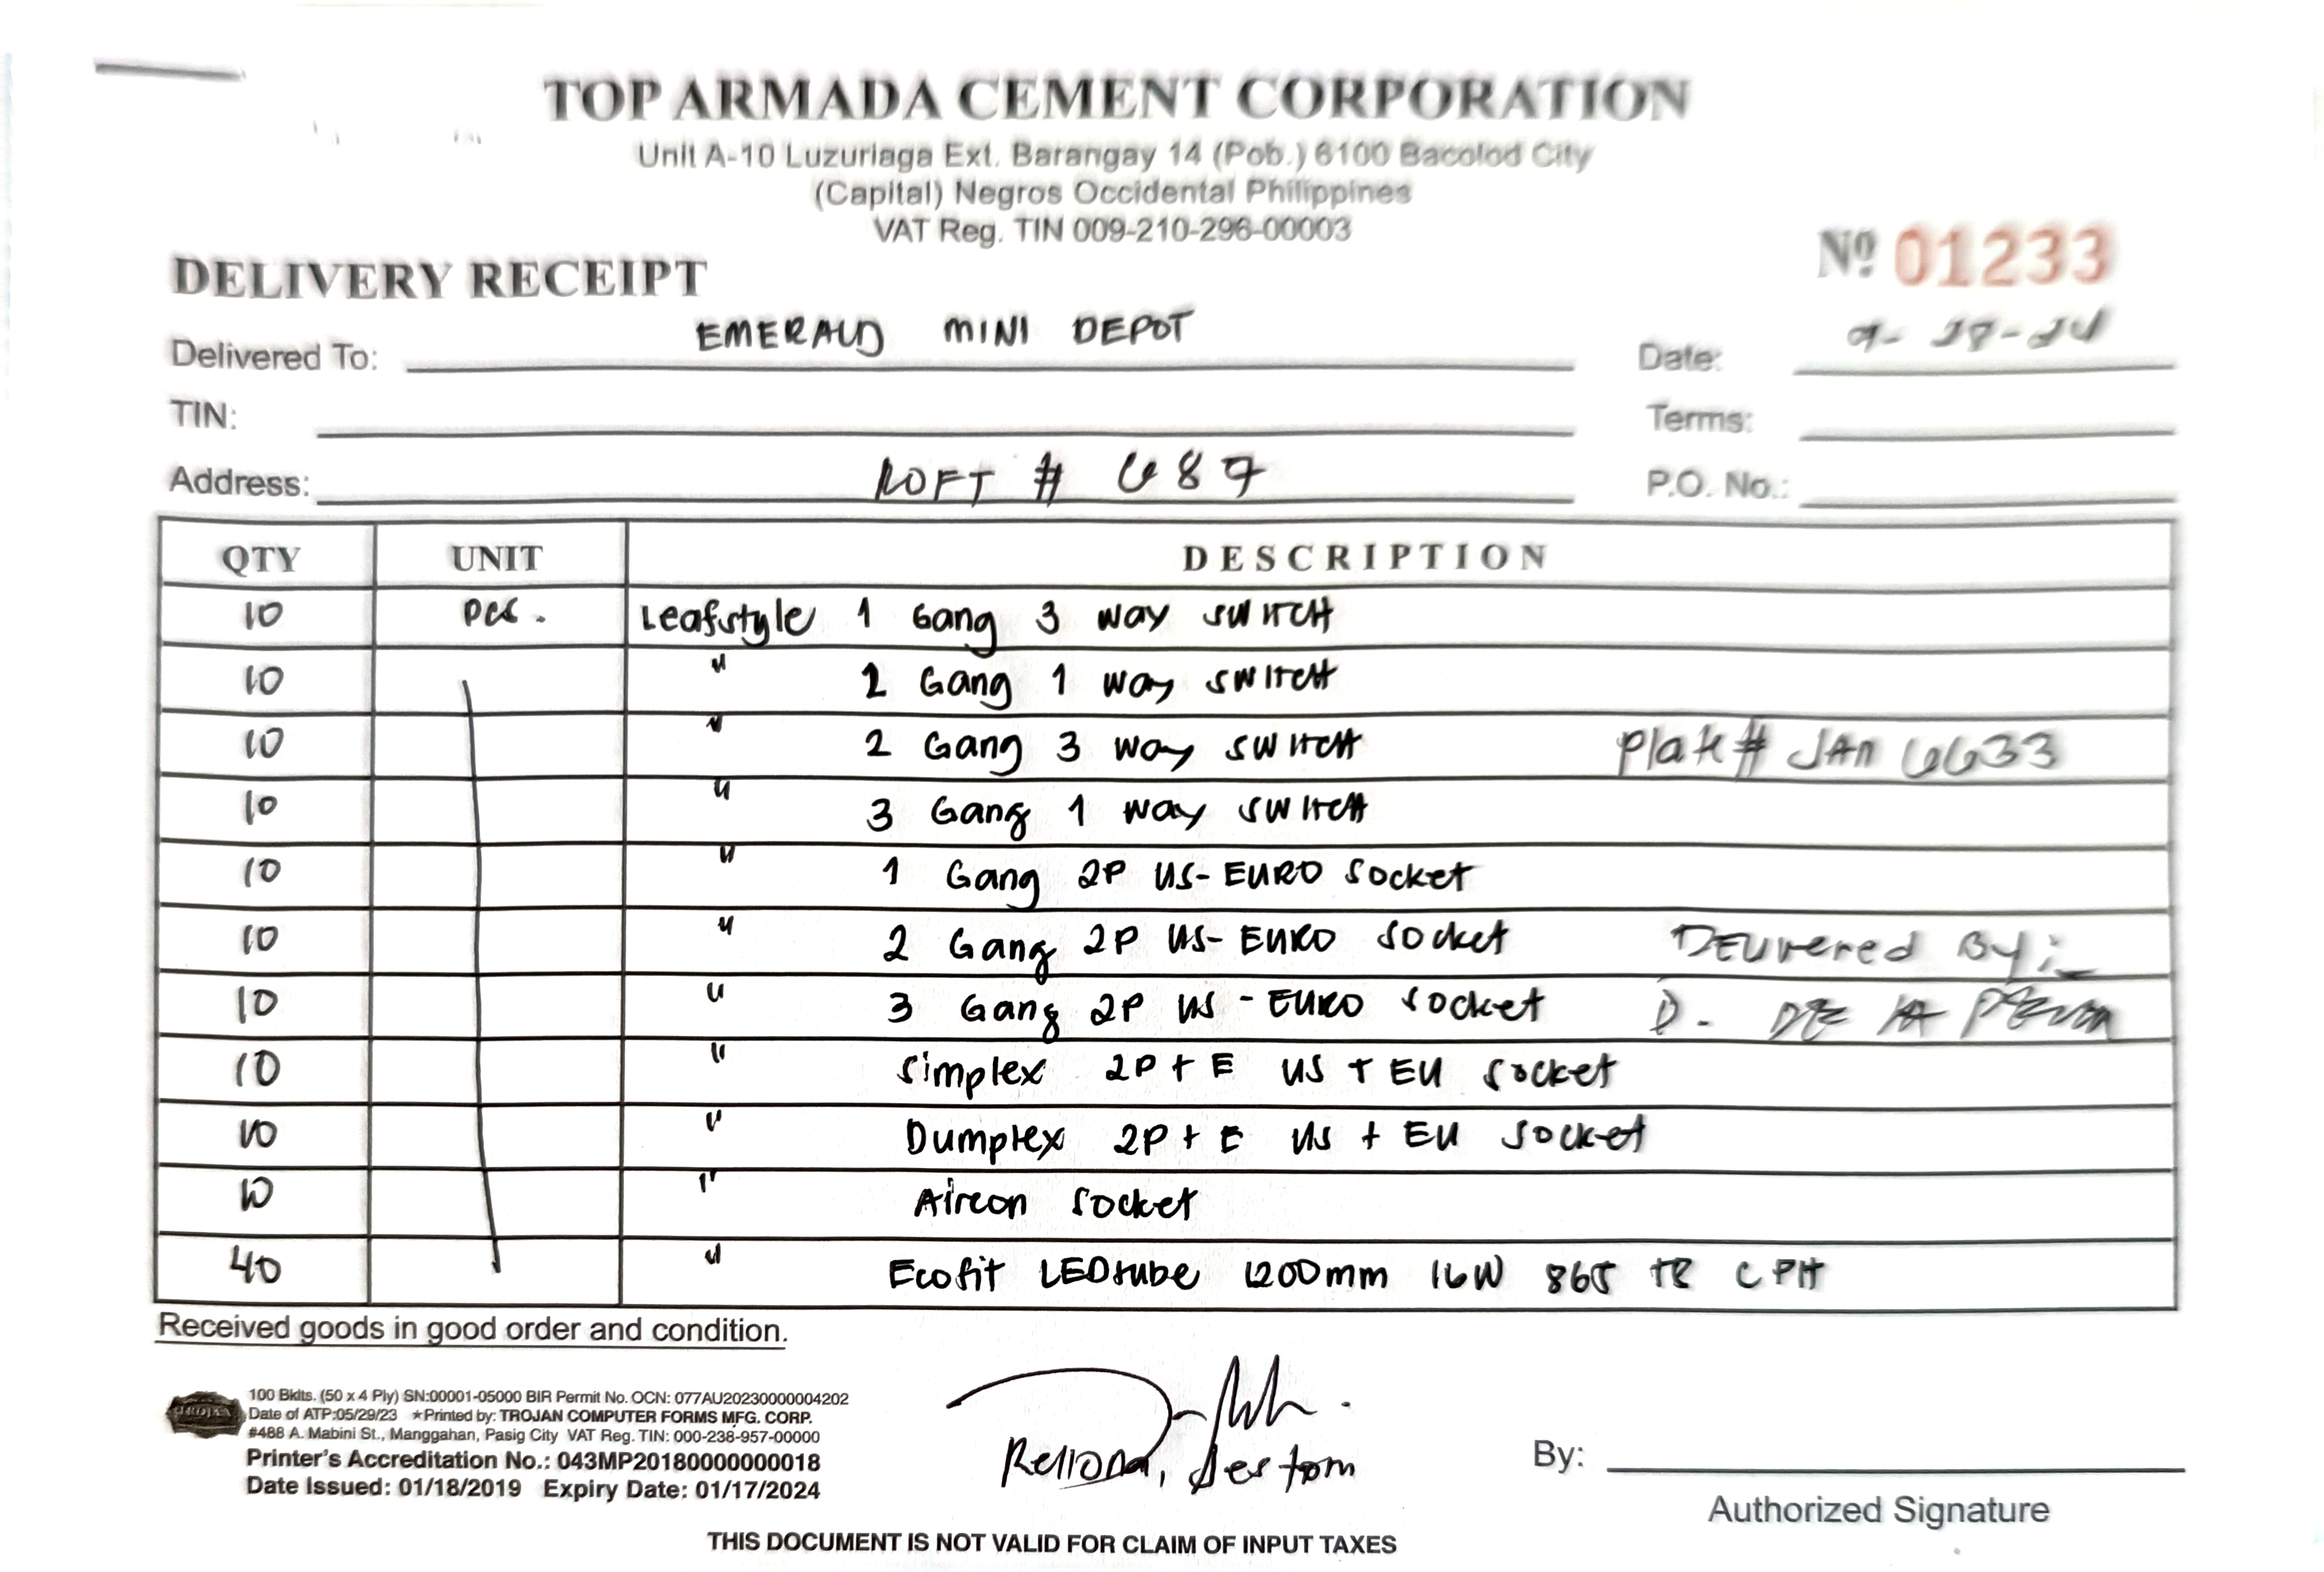 TOP ARMADA CEMENT CORPORATION
Unit A-10 Luzuriaga Ext. Barangay 14 (Pob.) 6100 Bacolod City
(Capital) Negros Occidental Philippines
VAT Reg. TIN 009-210-296-00003
DELIVERY RECEIPT
Nº 01233
Delivered To: EMERALD MINI DEPOT
Date: 9-28-24
TIN:
Terms:
Address: ROFT # 687
P.O. No.:
QTY UNIT DESCRIPTION
10 pcs. Leafstyle 1 Gang 3 way switch
10 " 2 Gang 1 way switch
10 " 2 Gang 3 way switch Plate# JAN 6633
10 " 3 Gang 1 way switch
10 " 1 Gang 2P US-EURO Socket
10 " 2 Gang 2P US-EURO Socket Delivered By:
10 " 3 Gang 2P US-EURO Socket D. DE LA
10 " Simplex 2P+E US+EU Socket
10 " Dumplex 2P+E US+EU Socket
10 " Aircon Socket
40 " Ecofit LEDtube 1200mm 16W 865 T8 CPH
Received goods in good order and condition.
TROJAN
100 Bklts. (50 x 4 Ply) SN:00001-05000 BIR Permit No. OCN: 077AU20230000004202
Date of ATP:05/29/23 ★Printed by: TROJAN COMPUTER FORMS MFG. CORP.
#488 A. Mabini St., Manggahan, Pasig City VAT Reg. TIN: 000-238-957-00000
Printer's Accreditation No.: 043MP20180000000018
Date Issued: 01/18/2019 Expiry Date: 01/17/2024
By:
Authorized Signature
THIS DOCUMENT IS NOT VALID FOR CLAIM OF INPUT TAXES